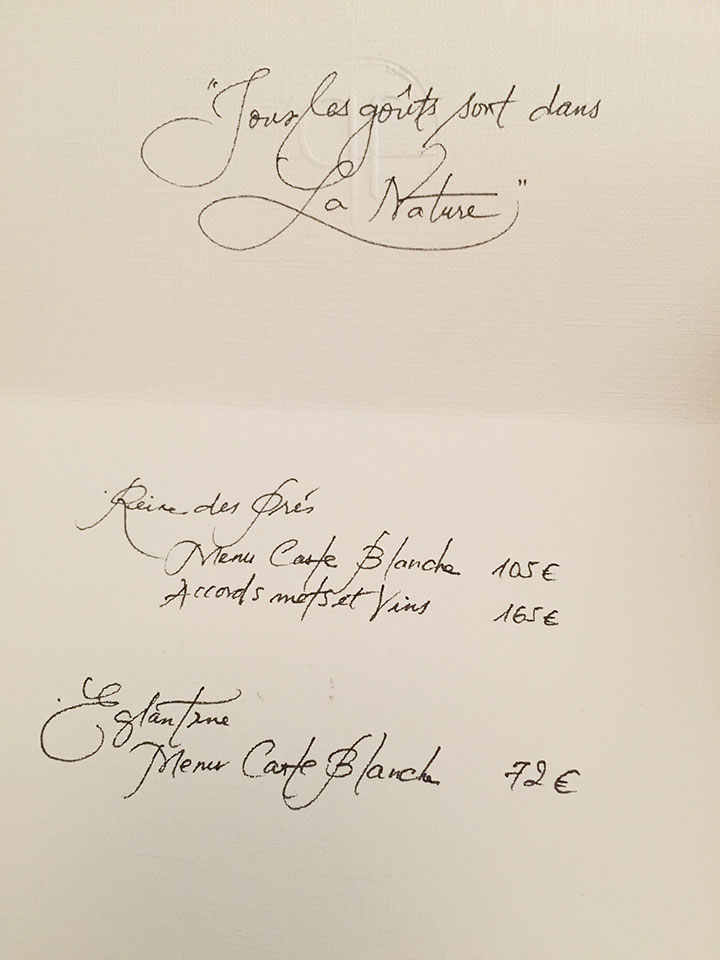 "Tous les goûts sont dans
La Nature"
Reine des Prés
Menu Carte Blanche 105€
Accords mets et Vins 165€
Eglantine
Menu Carte Blanche 72€